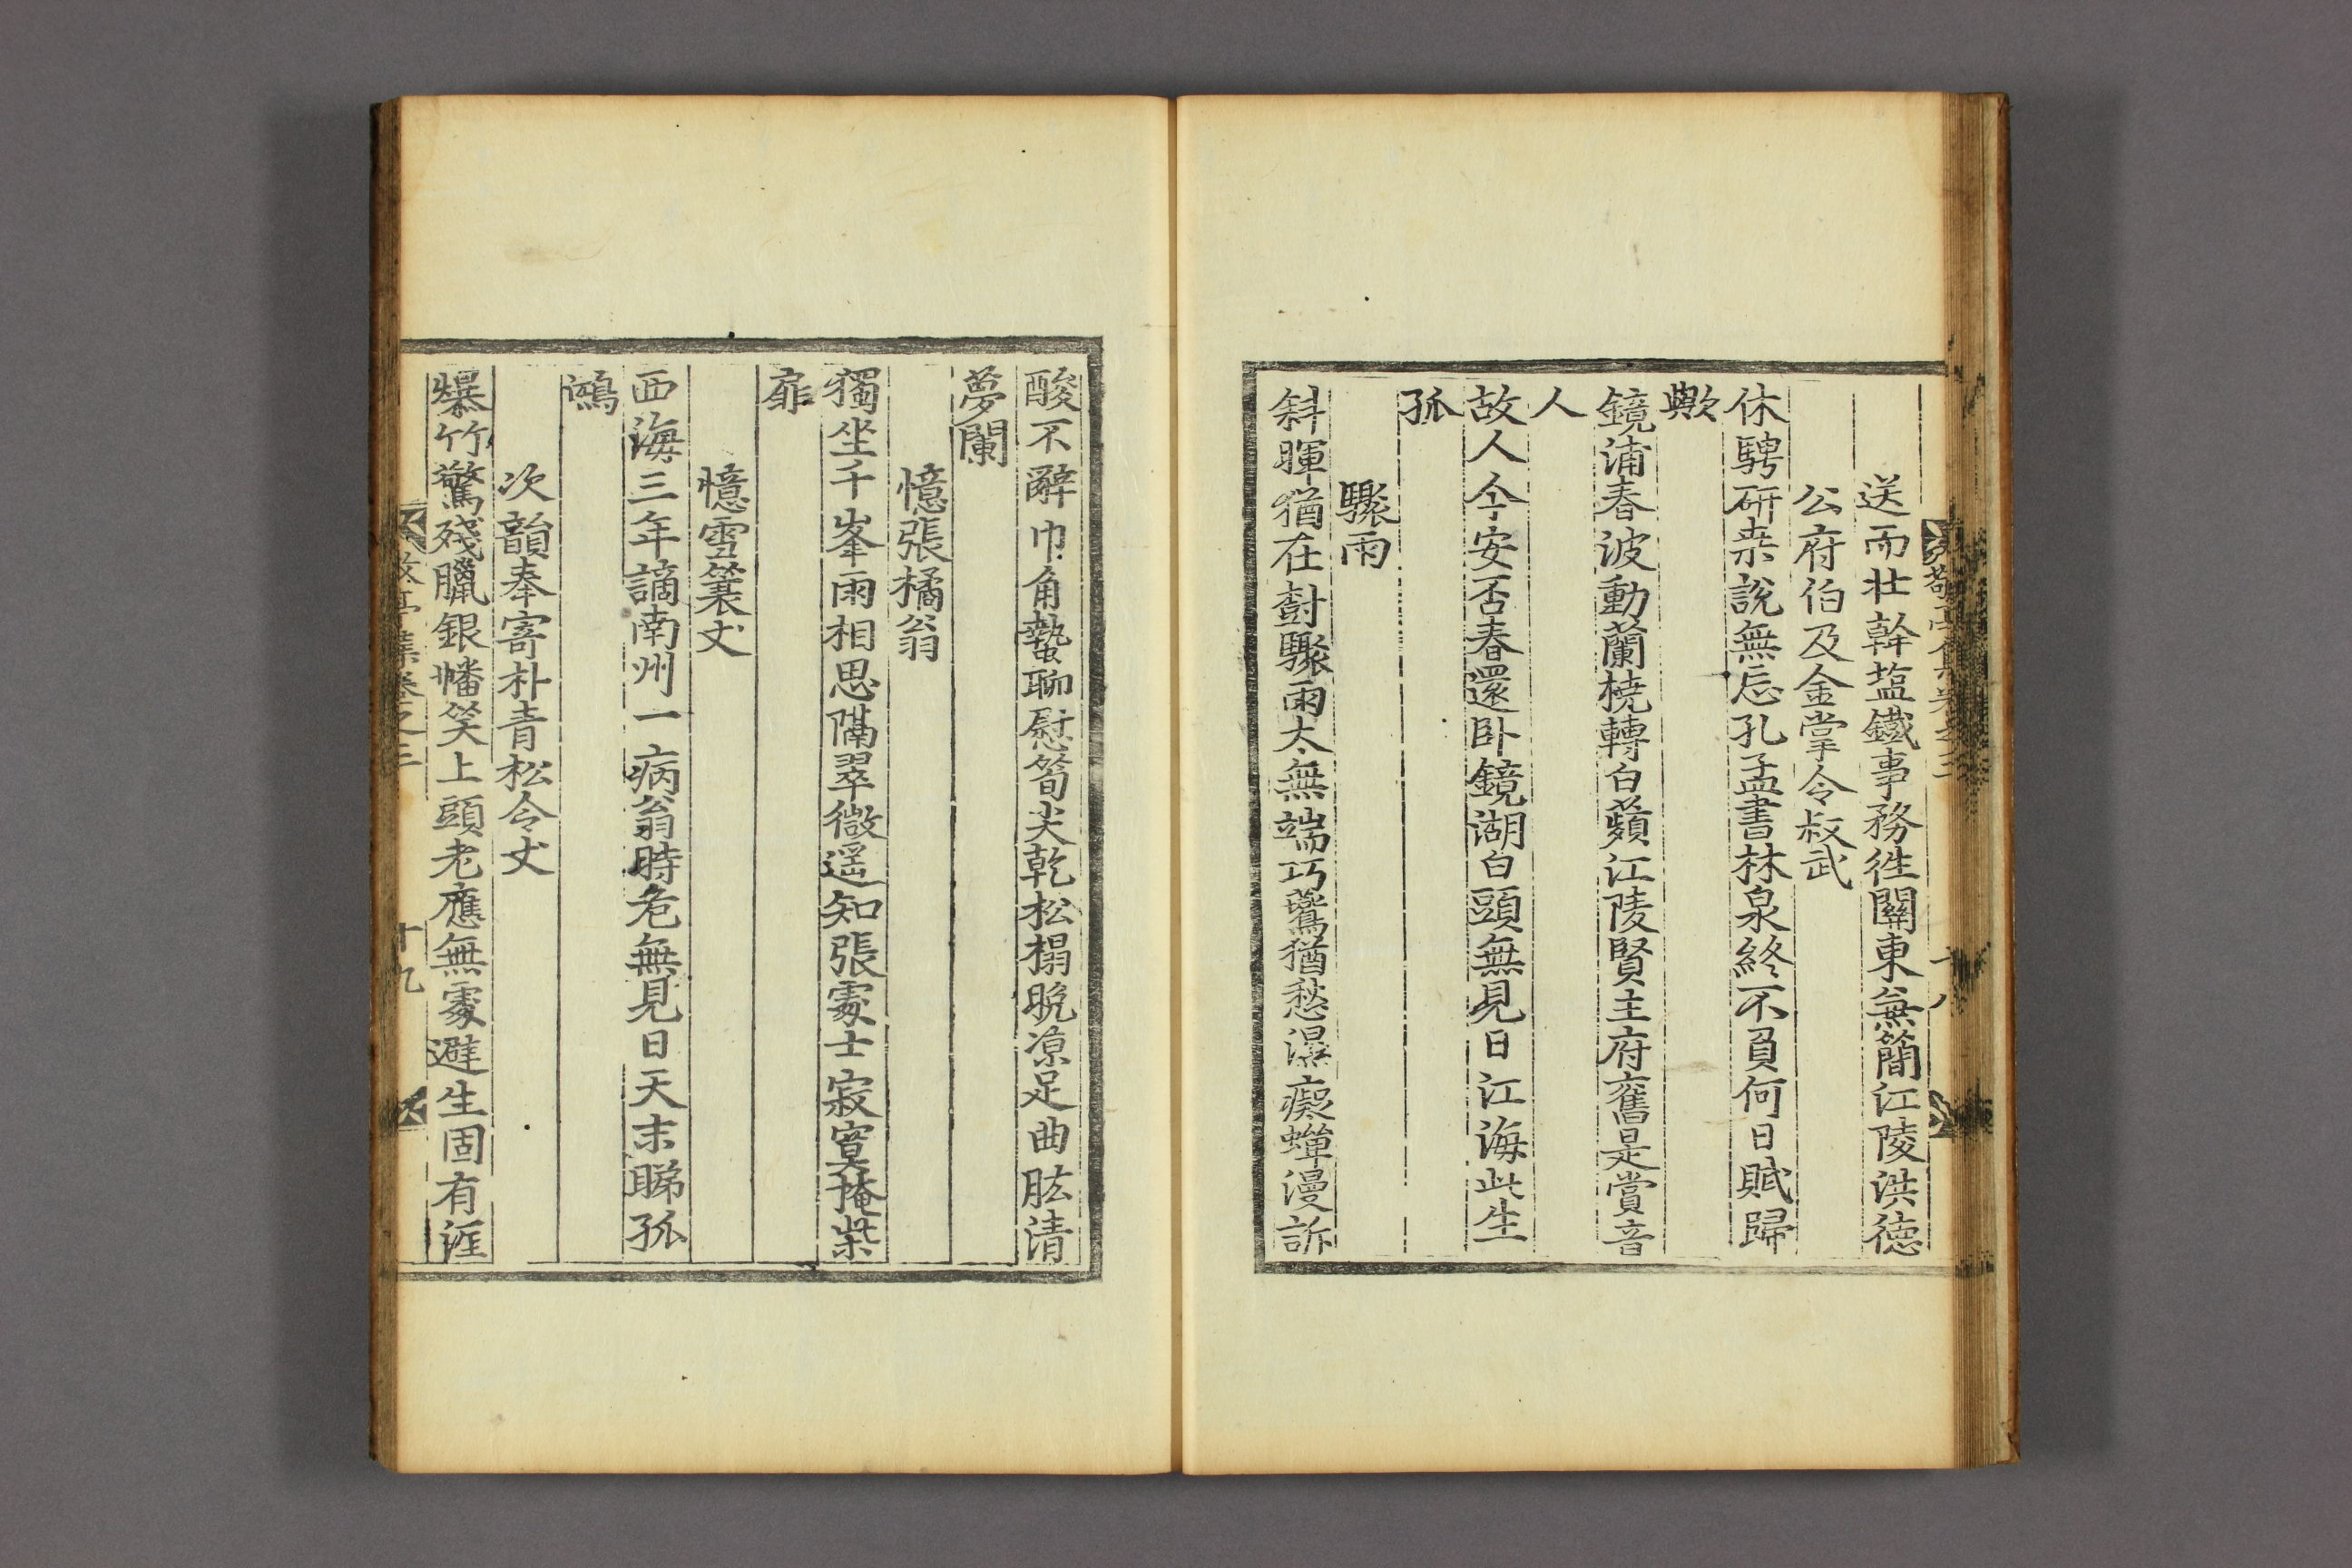 送而壯幹塩鐵事務徃關東兼簡江陵洪德
公府伯及金掌令叔武
休騁研桒說無忘孔孟書林泉終不負何日賦歸
歟
鏡浦春波動蘭橈轉白蘋江陵賢主府舊是賞音
人
故人今安否春還卧鏡湖白頭無見日江海此生
孤
驟雨
斜暉猶在對驟雨太無端巧鶯猶愁濕癡蟬漫訴
酸不辭巾角墊聊慰筍尖乾松榻晩凉足曲肱清
夢闌
憶張橘翁
獨坐千峯雨相思隔翠微遥知張處士寂寞掩柴
扉
憶雪簑丈
西海三年謫南州一病翁時危無見日天末睇孤
鴻
次韻奉寄朴青松令丈
爆竹驚殘臘銀幡笑上頭老應無處避生固有涯
亭集卷之三
十九